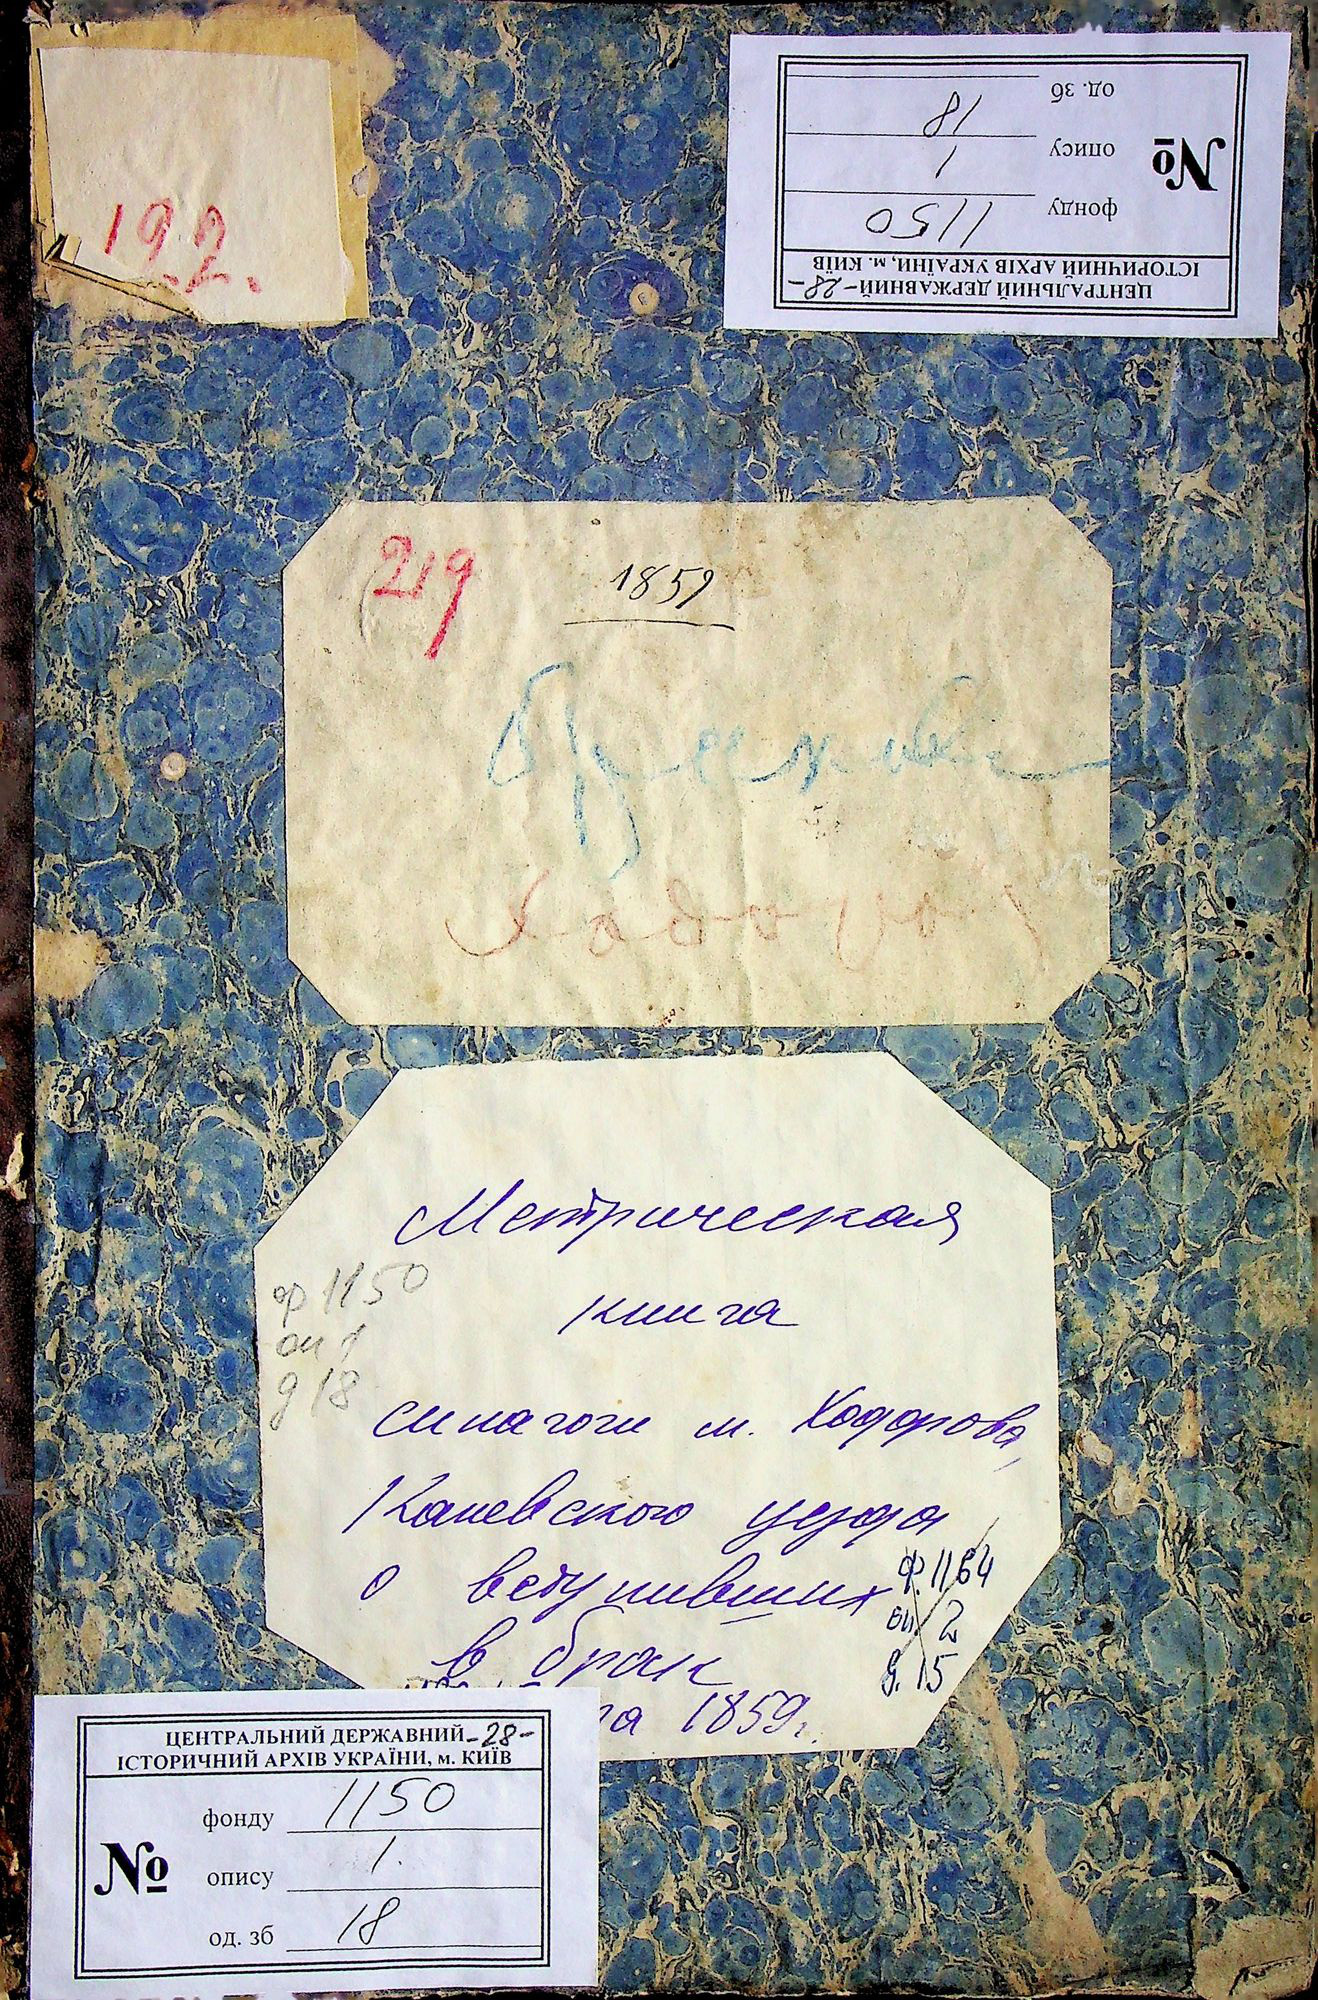 192.
ЦЕНТРАЛЬНИЙ ДЕРЖАВНИЙ -28-
ІСТОРИЧНИЙ АРХІВ УКРАЇНИ, м. КИЇВ
фонду 1150
№ опису 1
од. зб 18
219
1859
Метрическая
книга
ф 1150
оп 1
д 18
синагоги м. Ходорова,
Каневского уезда
о вступивших
в брак
ф. 1164
оп 2
д. 15
1859г.
ЦЕНТРАЛЬНИЙ ДЕРЖАВНИЙ -28-
ІСТОРИЧНИЙ АРХІВ УКРАЇНИ, м. КИЇВ
фонду 1150
№ опису 1.
од. зб 18